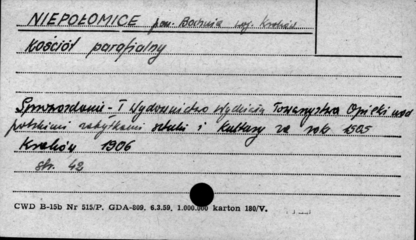 NIEPOŁOMICE pow. Bochnia woj. Kraków
Kościół parafialny
Sprawozdanie - I Wydawnictwo Wydziału Towarzystwa Opieki nad
polskimi zabytkami sztuki i kultury za rok 1905
Kraków 1906
str. 43
CWD B-15b Nr 515/P. GDA-809, 6.3.59, 1.000.000 karton 180/V.